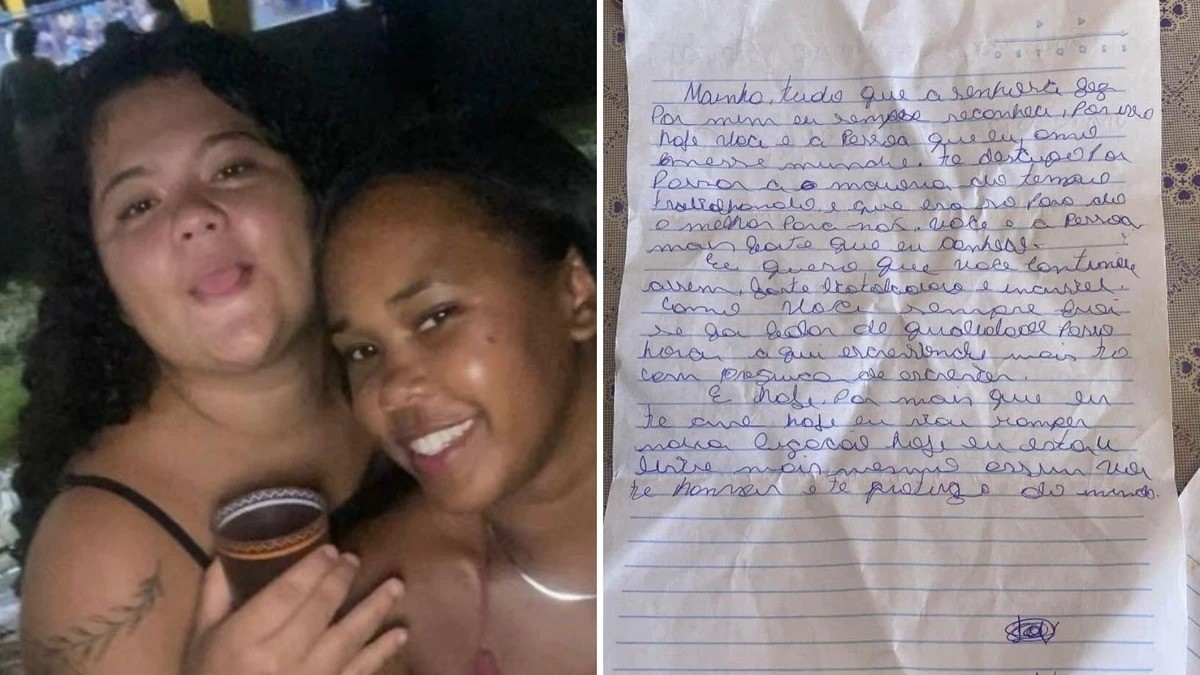 D S T Q Q S S
Mainha, tudo que a senhora fez
por mim eu sempre reconheci, por isso
hoje você e a pessoa que eu amo
nesse mundo. te desculpe por
passar a maioria do tempo
trabalhando, e que era so para da
o melhor para nós. Você e a pessoa
mais forte que eu conheso.
Eu quero que você continue
assim, forte trabalhadora e incrivel.
Como você sempre
falar de qualidades
aqui escrevendo mais to
com preguisa de escrever.
E hoje, por mais que eu
te ame hoje eu vou romper
nossa ligacao hoje eu estou
livre mais mesmo assim vou
te honrar e te protege do mundo.